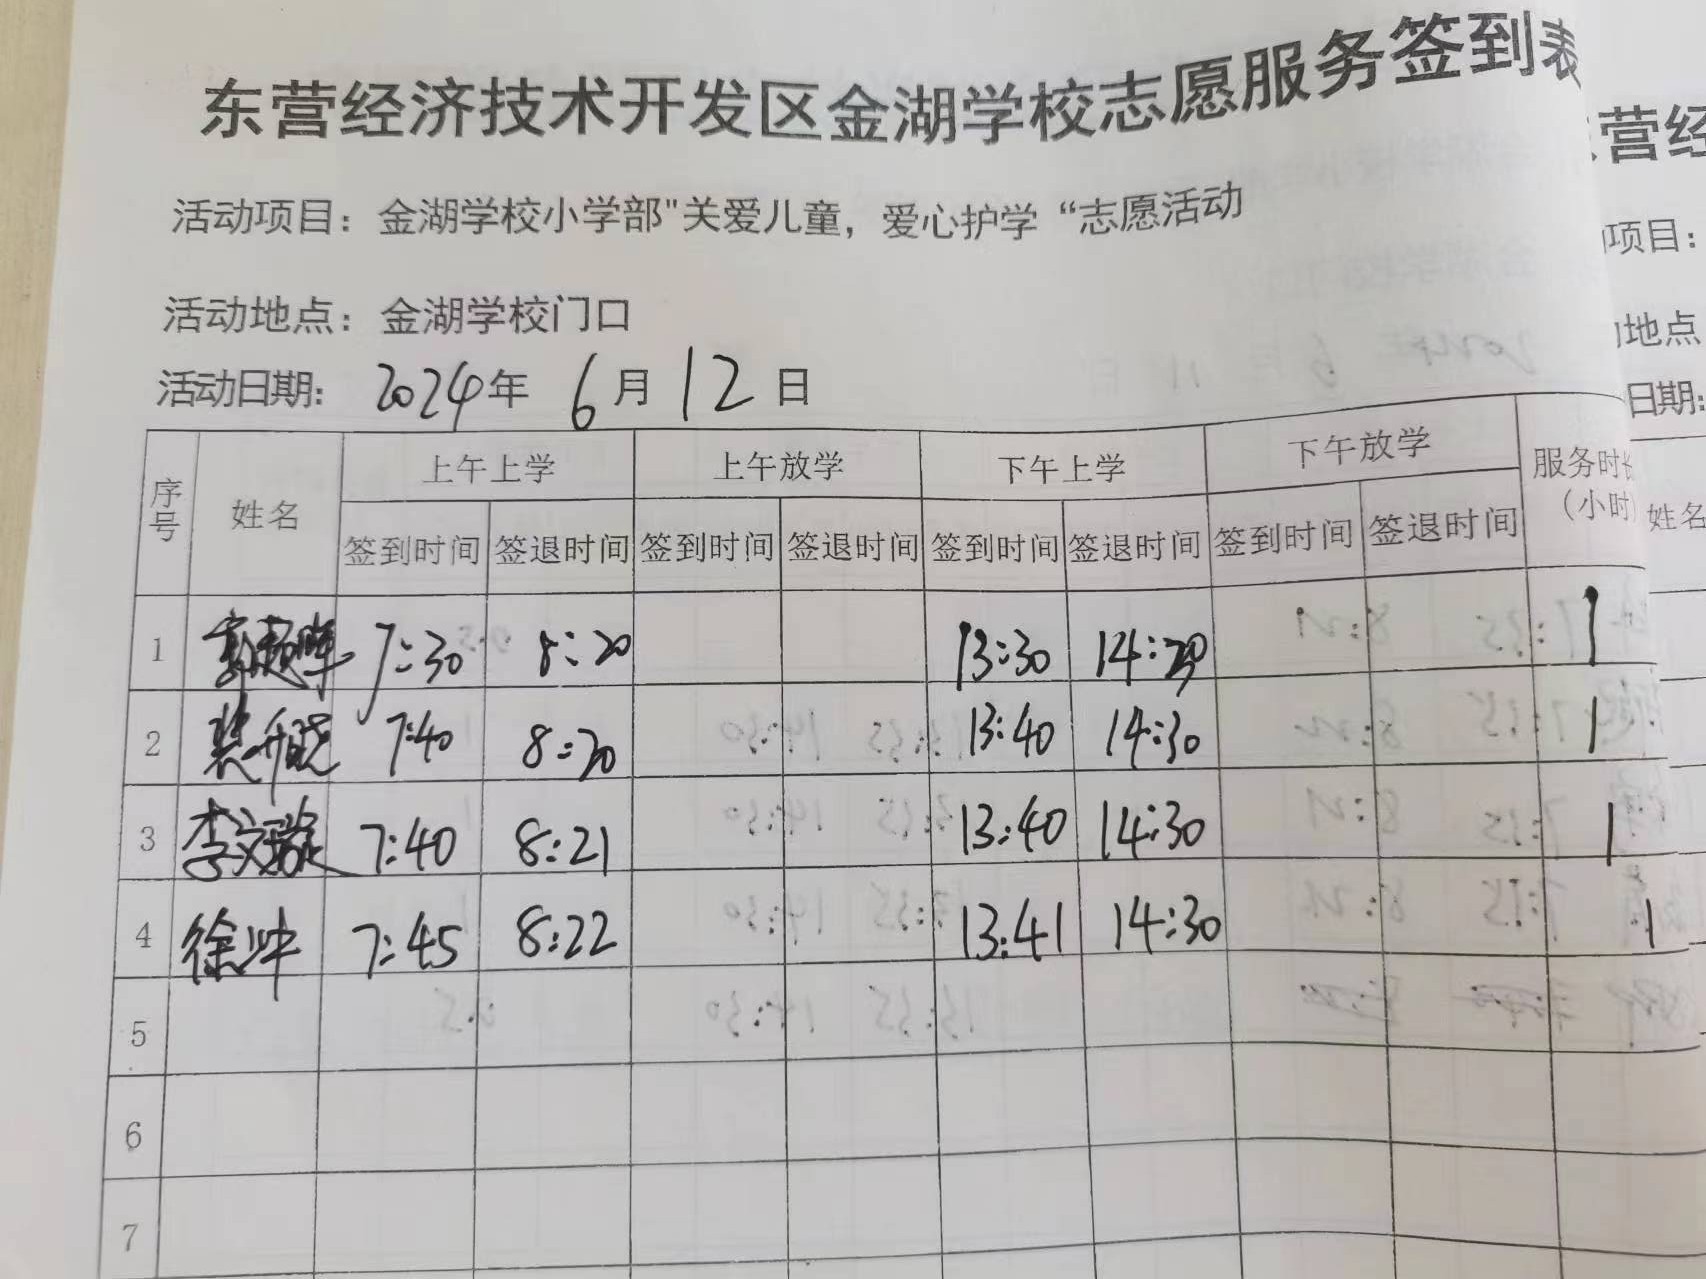 东营经济技术开发区金湖学校志愿服务签到表
活动项目：金湖学校小学部"关爱儿童，爱心护学“志愿活动
活动地点：金湖学校门口
活动日期：2024年 6月 12日
序号 姓名 上午上学 上午放学 下午上学 下午放学 服务时长（小时）
签到时间 签退时间 签到时间 签退时间 签到时间 签退时间 签到时间 签退时间
1 7:30 8:20 13:30 14:20 1
2 7:40 8:20 13:40 14:30 1
3 李文璇 7:40 8:21 13:40 14:30 1
4 徐冲 7:45 8:22 13:41 14:30 1
5
6
7
营经
项目：
地点
日期：
姓名